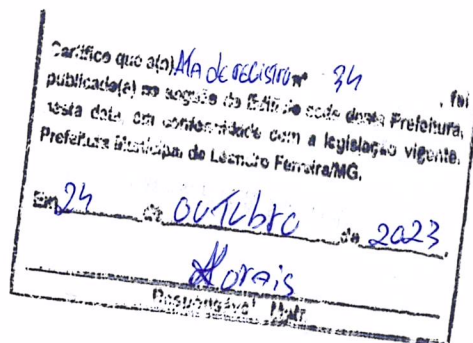 Certifico que a(o) Ata de registro nº 34, foi
publicado(a) no saguão do Edifício sede desta Prefeitura,
nesta data, em conformidade com a legislação vigente.
Prefeitura Municipal de Leandro Ferreira/MG.
Em 24 de OUTUbrO de 2023.
Morais
Responsável Matr.